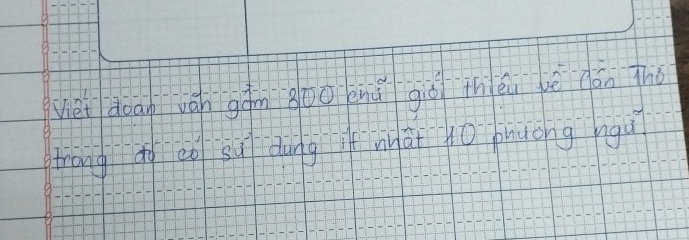 Viết đoạn văn gồm 300 chữ giới thiệu về Cần Thơ
trong đó có sử dụng ít nhất 10 phương ngữ